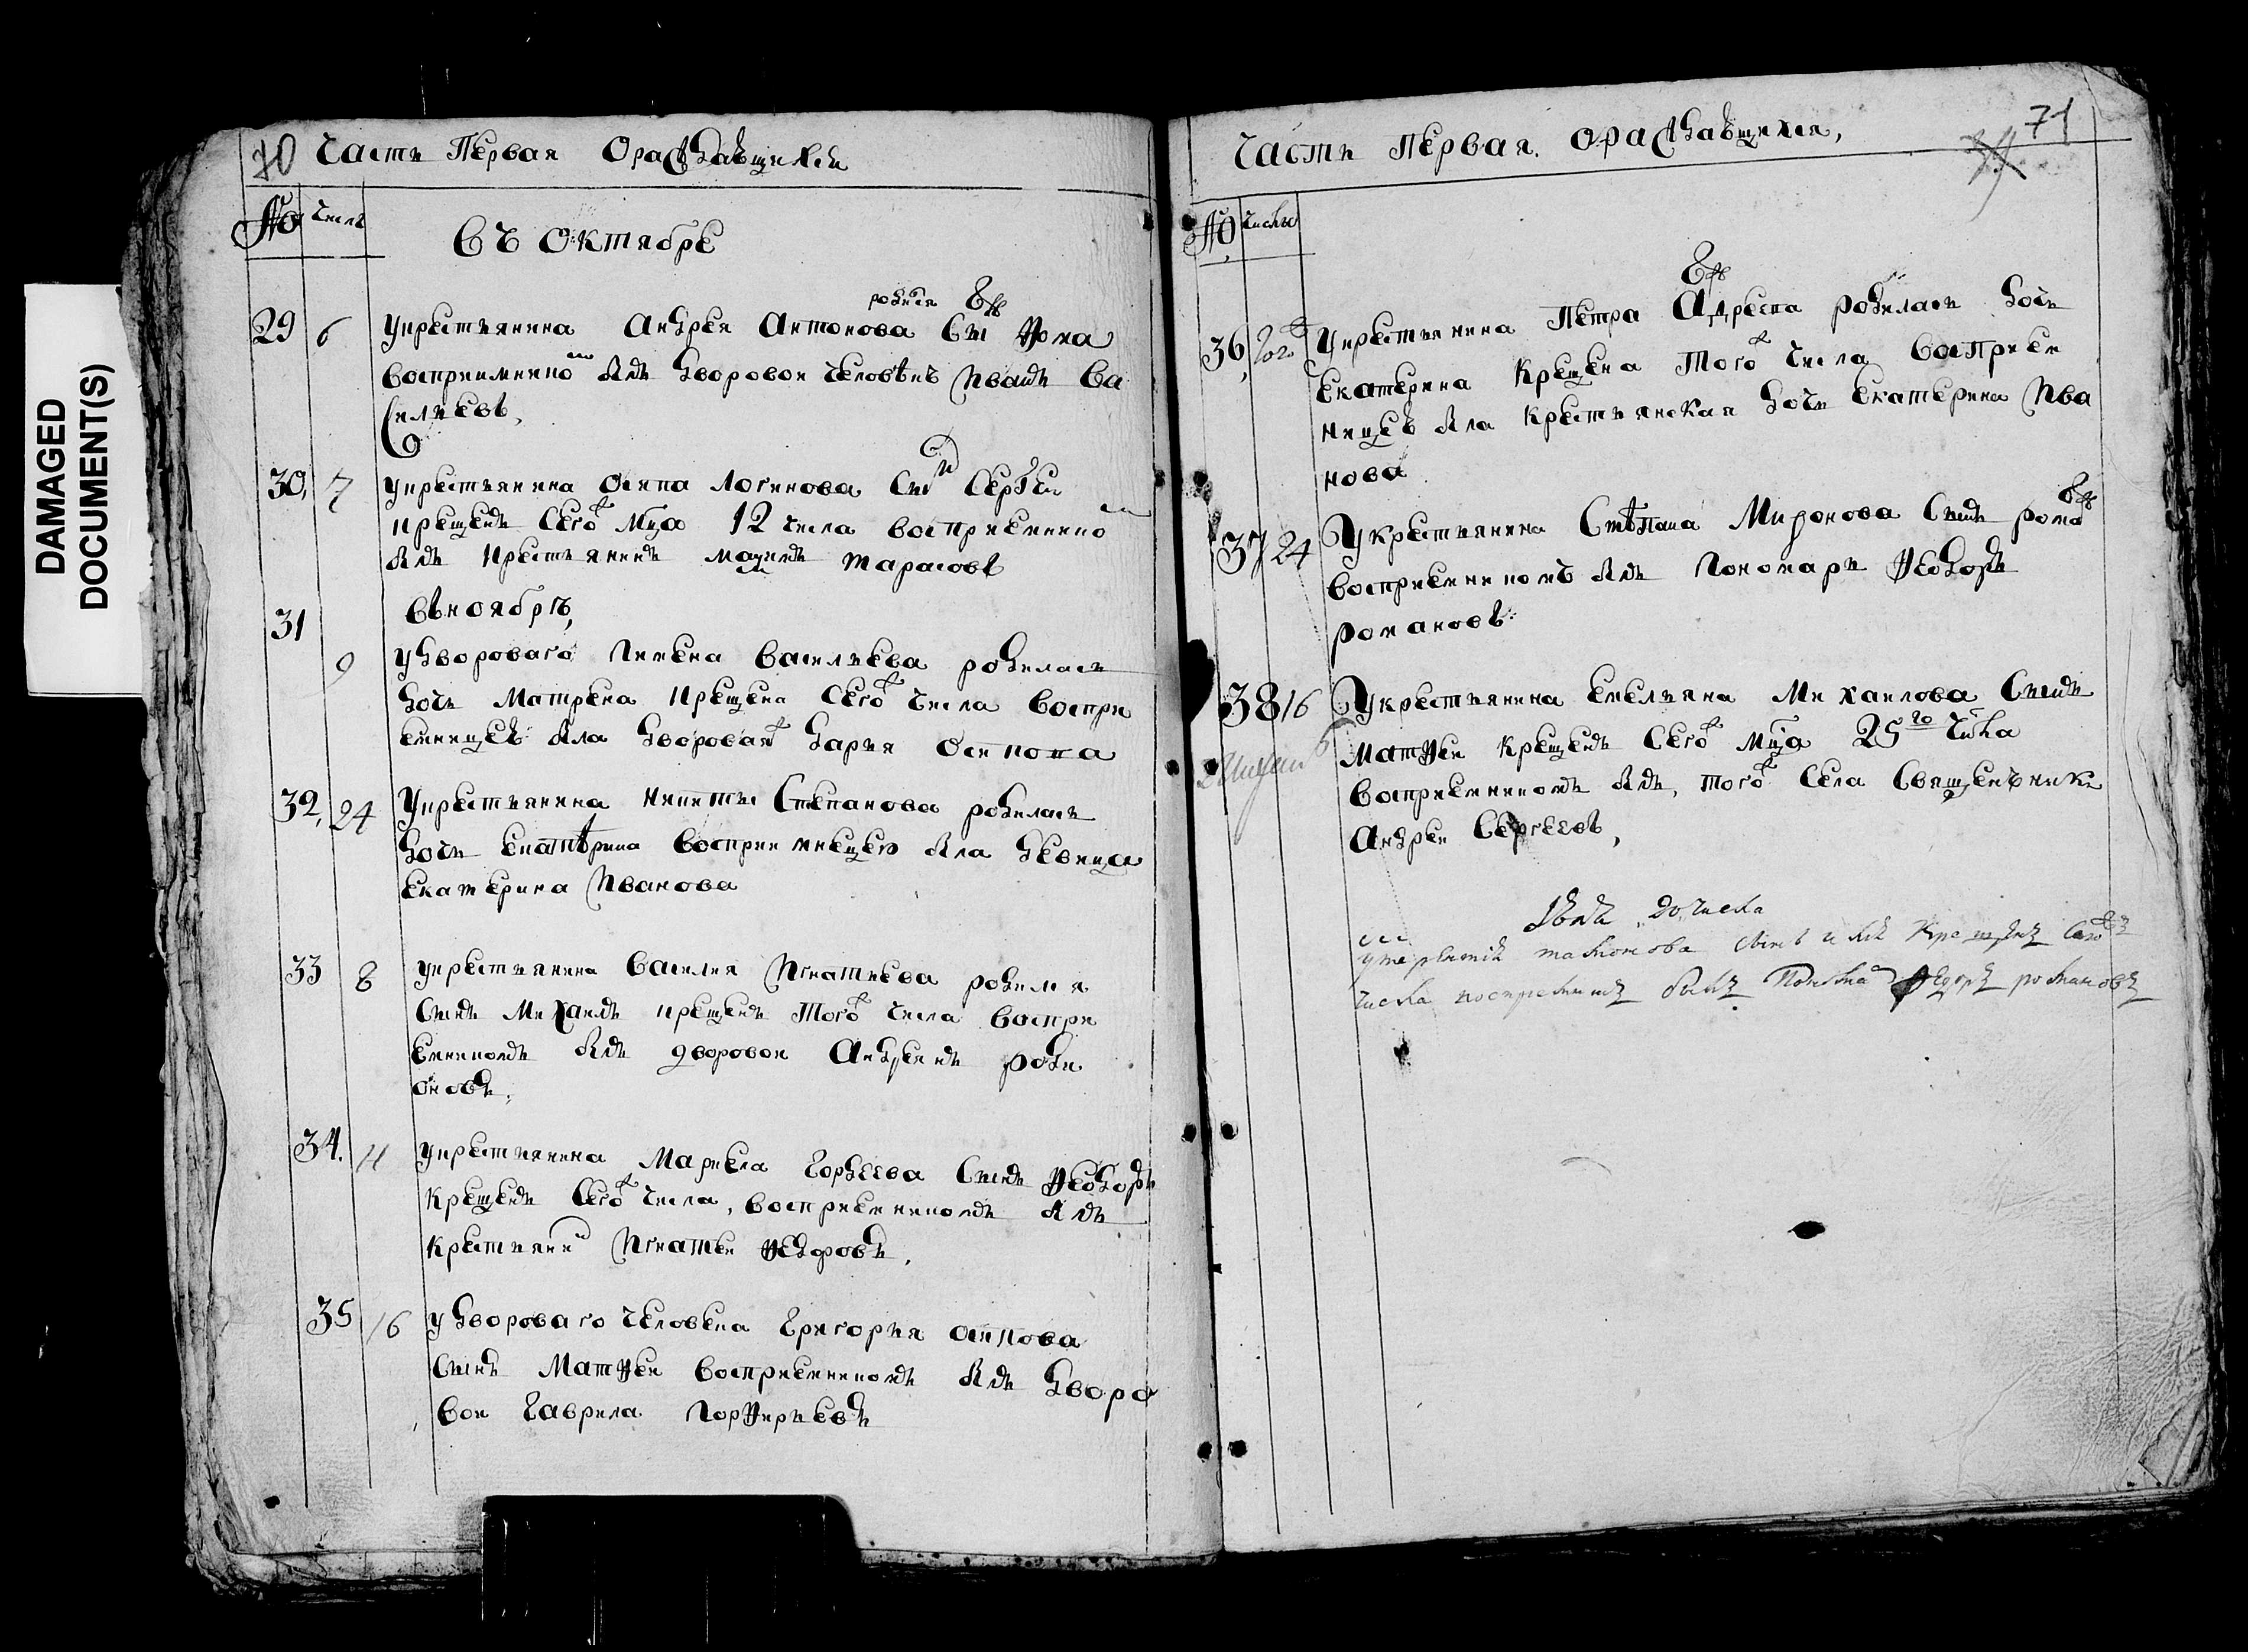 DAMAGED
DOCUMENT(S)
70 Часть Первая О раждавшихся
№ Число
Въ Октябре
29 6 у крестьянина Андрея Антонова родился Сын Фома
восприимнико был дворовои человѣкъ Иванъ Ва
силиевъ,
30, 7 у крестьянина Осипа Логинова Сын Сергеи
крещенъ Сего мца 12 числа восприемнико
былъ крестьянинъ Тарасовъ
31 въ ноябрѣ,
9 у двороваго Пимена Василиева родилась
дочь Матрена крещена Сего числа воспри
емницеи была дворовая Дария Осипова
32, 24 У крестьянина Никиты Степанова родилась
дочь Екатѣрина восприимницею была девица
Екатерина Иванова
33 8 у крестьянина Василия Игнатиева родился
Сынъ Михаилъ крещенъ Того числа воспри
емникомъ былъ дворовои роди
оновъ,
34. 11 у крестьянина Гордеева Сынъ Феодоръ
крещенъ Сего числа, восприемникомъ былъ
крестьянин Игнатеи Федоровъ,
35 16 у двороваго человека Григория Осипова
Сынъ Матфеи восприемникомъ былъ дворо
вои Гаврила Порфирьевъ
Часть Первая. О раждавшихся, 71
№ Число
36, У крестьянина Петра родилась дочь
Екатерина крещена Того числа Восприем
ницеи была крестьянская дочь Екатерина Ива
нова
37 24 У крестьянина Стѣпана Миронова Сынъ рома
восприемникомъ былъ Пономарь Феодоръ
романовъ
38 16 У крестьянина Емельяна Михаилова Сынъ
Матфеи крещенъ Сего мца 25го числа
восприемникомъ былъ, того Села Священъникъ
Андреи Сергеевъ,
числа
крещенъ Сего
числа былъ Федоръ романовъ